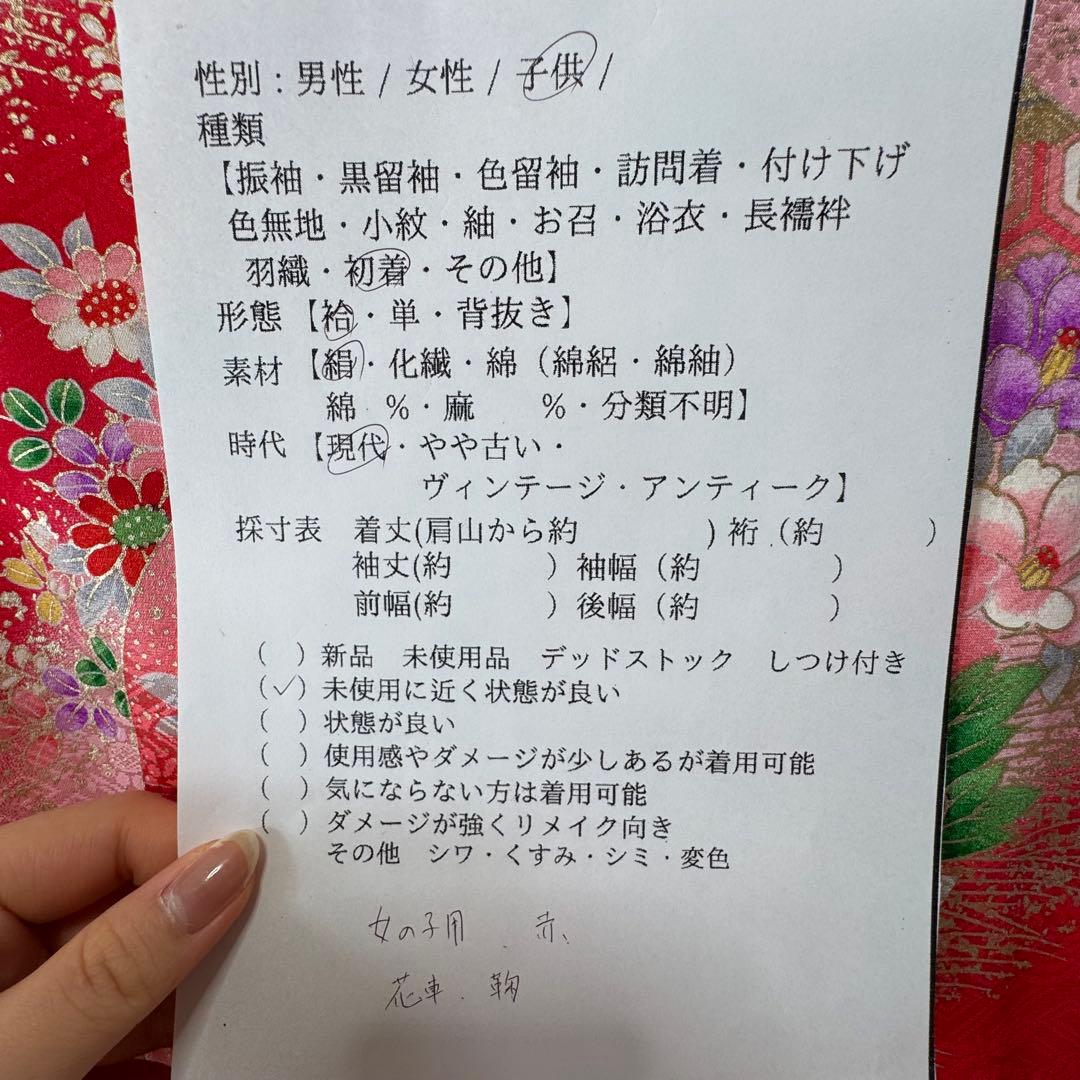 性別：男性 / 女性 / 子供 /
種類
【振袖・黒留袖・色留袖・訪問着・付け下げ
色無地・小紋・紬・お召・浴衣・長襦袢
羽織・初着・その他】
形態 【袷・単・背抜き】
素材 【絹・化繊・綿（綿絽・綿紬）
綿 %・麻 %・分類不明】
時代 【現代・やや古い・
ヴィンテージ・アンティーク】
採寸表 着丈(肩山から約 ) 裄（約 ）
袖丈(約 ）袖幅（約 ）
前幅(約 ）後幅（約 ）
( ）新品 未使用品 デッドストック しつけ付き
(✓）未使用に近く状態が良い
( ）状態が良い
( ）使用感やダメージが少しあるが着用可能
( ）気にならない方は着用可能
( ）ダメージが強くリメイク向き
その他 シワ・くすみ・シミ・変色
女の子用 、赤、
花車、鞠